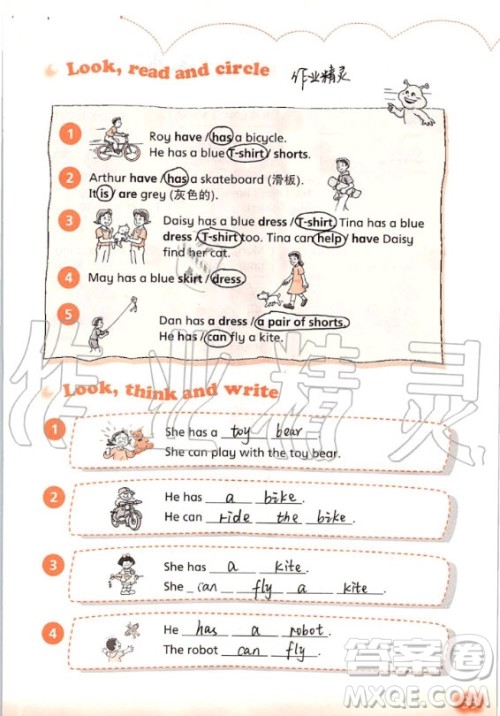 Look, read and circle
作业精灵
1
Roy have / has a bicycle.
He has a blue T-shirt / shorts.
2
Arthur have / has a skateboard (滑板).
It is / are grey (灰色的).
3
Daisy has a blue dress / T-shirt. Tina has a blue
dress / T-shirt too. Tina can help / have Daisy
find her cat.
4
May has a blue skirt / dress.
5
Dan has a dress / a pair of shorts.
He has / can fly a kite.
作业精灵
Look, think and write
1
She has a toy bear
She can play with the toy bear.
2
He has a bike.
He can ride the bike.
3
She has a kite.
She can fly a kite.
4
He has a robot.
The robot can fly.
答案圈
MXQE.COM